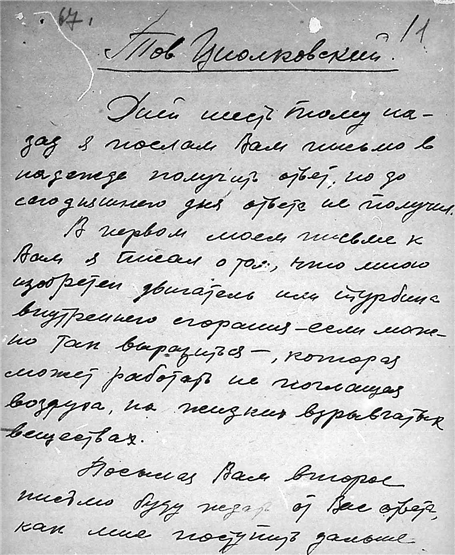 67.
11
Тов Циолковский.
Дней шесть тому на-
зад я послал Вам письмо в
надежде получить ответ, но до
сегодняшнего дня ответа не получил.
В первом моем письме к
Вам я писал о том, что мною
изобретен двигатель или турбина
внутреннего сгорания – если мож-
но так выразиться –, которая
может работать не поглощая
воздуха, на жидких взрывчатых
веществах.
Посылая Вам второе
письмо буду ждать от Вас ответа,
как мне поступить дальше.